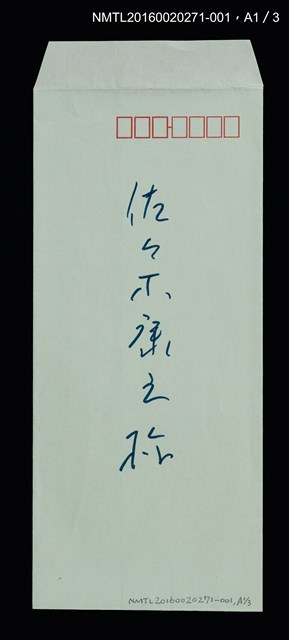 NMTL20160020271-001，A1 / 3
佐々木康之様
NMTL20160020271-001, A1/3